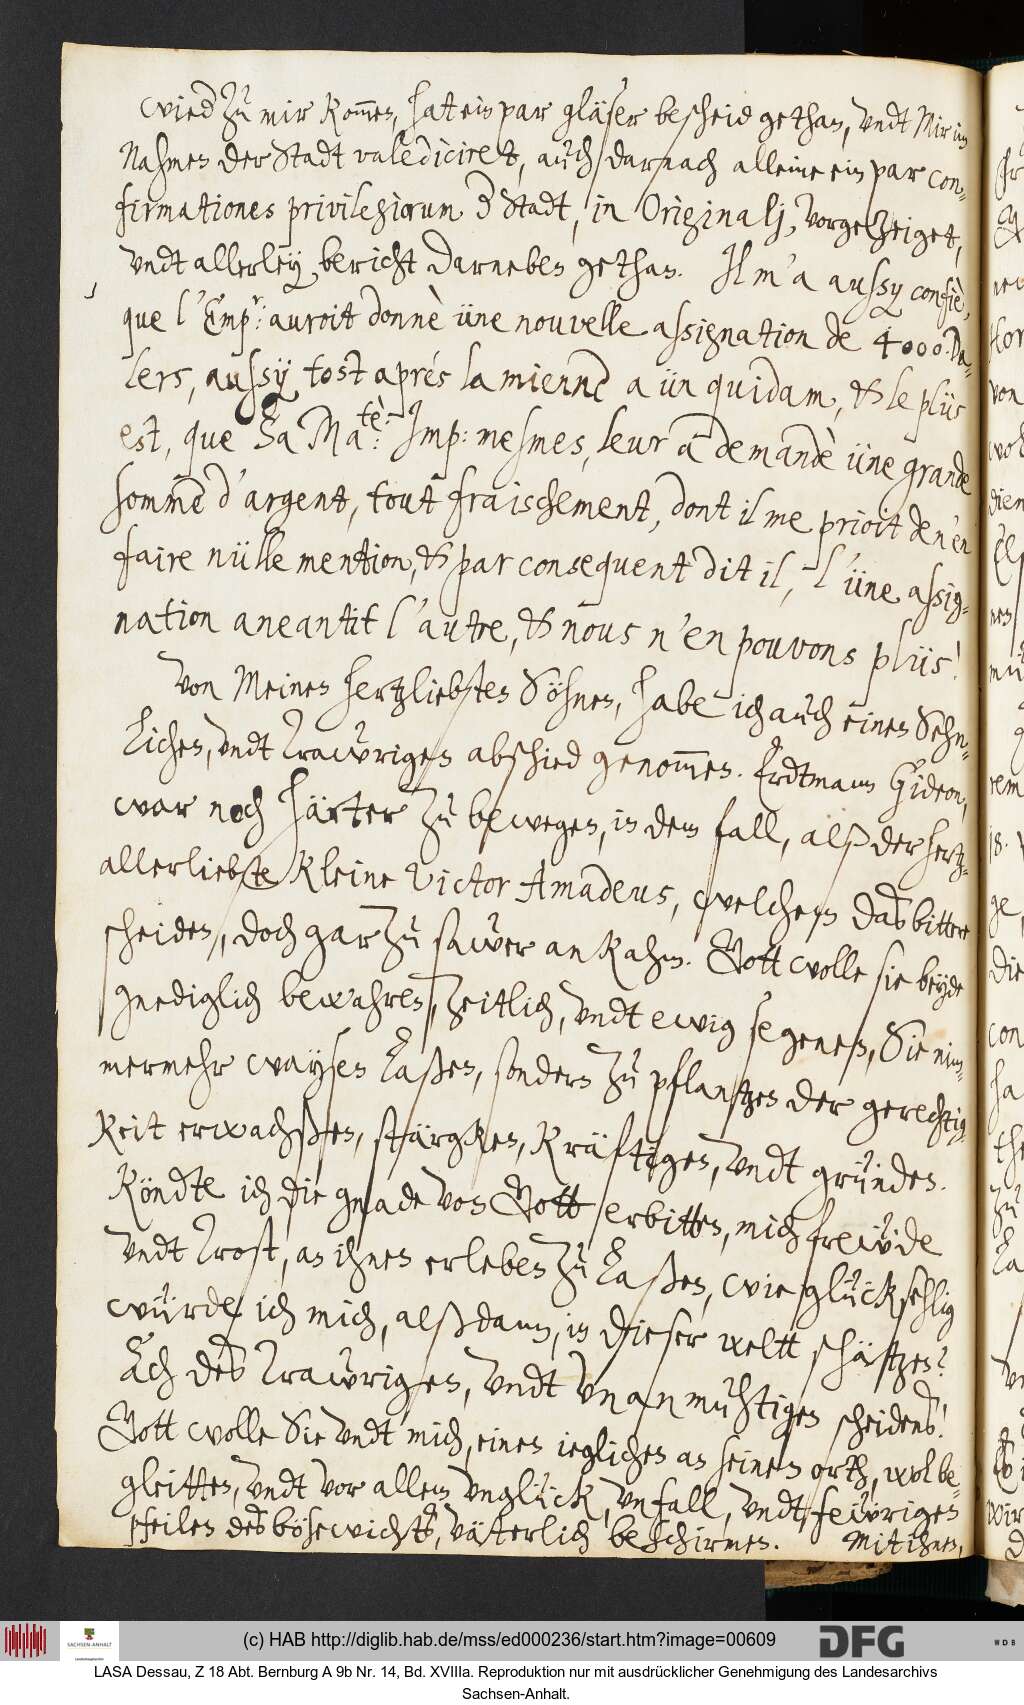 wied zu mir kom̄en, hat ein par gläser bescheid gethan, undt Mir im
Nahmen der Stadt valediciret, auch darnach alleine ein par con-
firmationes privilegiorum d Stadt, in Originalj, vorgezeiget,
undt allerley bericht darneben gethan. Il m'a aussy confiè,
que l'Emp.r: auroit donnè üne nouvelle assignation de 4000. Da-
lers, aussÿ tost aprés la mienne a ün quidam, & le plüs
est, que Sa Ma.tè: Imp: mesmes, leur a demandè üne grande
somme d'argent, tout fraischement, dont il me prioit de n'en
faire nülle mention, & par consequent dit il, l'üne assig-
nation aneantit l'autre, & nous n'en pouvons plüs!
Von Meinen hertzliebsten Söhnen, habe ich auch einen Sehn-
lichen, undt Trawrigen abschied genom̄en. Erdtmann Gideon,
war noch härter zu bewegen, in dem fall, alß der hertz-
allerliebste kleine Victor Amadeus, welchem das bittere
scheiden, doch gar zu sawer ankahm. Gott wolle sie beyde
gnediglich bewahren, zeitlich, undt ewig segenen, Sie nim-
mermehr wayßen laßen, sondern zu pflantzen der gerechtig-
keit erwachßen, stärgken, kräftigen, undt gründen.
Köndte ich die gnade von Gott erbitten, mich frewde
undt Trost, an ihnen erleben zu laßen, wie glücksehlig
würde ich mich, alßdann, in dieser weltt schätzen?
Ach des Trawrigen, undt unanmuhtigen scheidens!
Gott wolle Sie undt mich, einen ieglichen an seinem orth, wol be-
gleitten, undt vor allem unglück, unfall, undt fewrigen
Pfeilen des bösewichts, väterlich beschirmen. Mit ihnen,
(c) HAB http://diglib.hab.de/mss/ed000236/start.htm?image=00609
DFG
WDB
SACHSEN-ANHALT
LASA Dessau, Z 18 Abt. Bernburg A 9b Nr. 14, Bd. XVIIIa. Reproduktion nur mit ausdrücklicher Genehmigung des Landesarchivs
Sachsen-Anhalt.